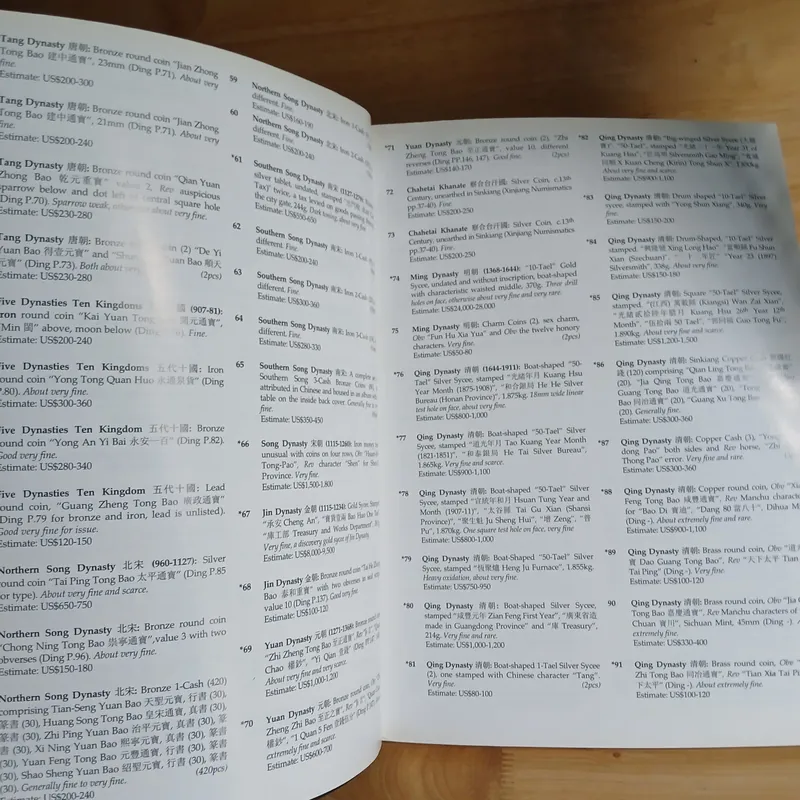 Tang Dynasty 唐朝: Bronze round coin "Jian Zhong
Tong Bao 建中通寶", 23mm (Ding P.71). About very
fine.
Estimate: US$200-300
Tang Dynasty 唐朝: Bronze round coin "Jian Zhong
Tong Bao 建中通寶", 21mm (Ding P.71). About very
fine.
Estimate: US$200-240
Tang Dynasty 唐朝: Bronze round coin "Qian Yuan
Zhong Bao 乾元重寶" value 2, Rev auspicious
sparrow below and dot left of central square hole
(Ding P.70). Sparrow weak, about very fine.
Estimate: US$230-280
Tang Dynasty 唐朝: Bronze coin (2) "De Yi
Yuan Bao 得壹元寶" and
元寶" (Ding P.73). Both about very (2pcs)
Estimate: US$230-280
Five Dynasties Ten Kingdoms 國 (907-81):
Iron round coin "Kai Yuan Tong 開元通寶",
"Min 閩" above, moon below (Ding Fine.
Estimate: US$200-240
Five Dynasties Ten Kingdoms 五代十國: Iron
round coin "Yong Tong Quan Huo 永通泉貨" (Ding
P.80). About very fine.
Estimate: US$300-360
Five Dynasties Ten Kingdoms 五代十國: Bronze
round coin "Yong An Yi Bai 永安一百" (Ding P.82).
Good very fine.
Estimate: US$280-340
Five Dynasties Ten Kingdom 五代十國: Lead
coin, "Guang Zheng Tong Bao 廣政通寶"
(Ding P.79 for bronze and iron, lead is unlisted).
Good very fine for issue.
Estimate: US$120-150
Northern Song Dynasty 北宋 (960-1127): Silver
round coin "Tai Ping Tong Bao 太平通寶" (Ding P.85
for type). About very fine and scarce.
Estimate: US$650-750
Northern Song Dynasty 北宋: Bronze round coin
"Chong Ning Tong Bao 崇寧通寶", value 3 with two
obverses (Ding P.96). About very fine.
Estimate: US$150-180
Northern Song Dynasty 北宋: Bronze 1-Cash (420)
comprising Tian-Seng Yuan Bao 天聖元寶, 行書 (30),
篆書 (30), Huang Song Tong Bao 皇宋通寶, 真書 (30), 篆
書 (30), Zhi Ping Yuan Bao 治平元寶, 真書 (30), 篆書
(30), Xi Ning Yuan Bao 熙寧元寶, 真書 (30), 篆書 (30),
Yuan Feng Tong Bao 元豐通寶, 行書 (30), 篆書
(30), Shao Sheng Yuan Bao 紹聖元寶, 行書 (30), 篆書
(30). Generally fine to very fine. (420pcs)
Estimate: US$200-240
59
Northern Song Dynasty 北宋: Iron 2-Cash
different. Fine.
Estimate: US$160-190
60
Northern Song Dynasty 北宋: Iron 2-Cash
different. Fine.
Estimate: US$200-240
*61
Southern Song Dynasty 南宋 (1127-1279):
silver tablet, undated, stamped
Tax)" twice, a tax levied on goods passing
the city gate, 244g. Dark toning, about very fine.
Estimate: US$550-650
62
Southern Song Dynasty 南宋: Iron
different. Fine.
Estimate: US$200-240
63
Southern Song Dynasty 南宋: Iron
different. Fine.
Estimate: US$300-360
64
Southern Song Dynasty 南宋: Iron 3-Cash
different. Fine.
Estimate: US$280-330
65
Southern Song Dynasty 南宋: A complete
Southern Song 3-Cash Bronze Coins
attributed in Chinese and housed in an album
table on the inside back cover. Generally fine to
fine.
Estimate: US$350-450
*66
Song Dynasty 宋朝 (1115-1260): Iron money
unusual with coins on four rows, Obv
Tong-Pao", Rev character "Shen" for
Province.
Estimate: US$1,500-1,800
*67
Jin Dynasty 金朝 (1115-1234): Gold Sycee, stamped
"承安 Cheng An",
"庫工部 Treasury and Works Department",
Very fine, a discovery gold sycee of Jin Dynasty.
Estimate: US$8,000-9,500
*68
Jin Dynasty 金朝: Bronze round coin "Tai He Zhong
Bao 泰和重寶" with two obverses
value 10 (Ding P.137). Good very fine.
Estimate: US$100-120
*69
Yuan Dynasty 元朝 (1271-1368): Bronze round
"Zhi Zheng Tong Bao 至正通寶", Rev
Chao 權鈔", "Yi Qian 壹錢"
About very fine and very scarce.
Estimate: US$1,000-1,200
*70
Yuan Dynasty 元朝: Bronze round coin,
Zheng Zhi Bao 至正之寶", Rev
權鈔", "1 Quan 5 Fen 壹錢伍分"
extremely fine and scarce.
Estimate: US$600-700
*71
Yuan Dynasty 元朝: Bronze round coin (2), "Zhi
Zheng Tong Bao 至正通寶", value 10, different
reverses (Ding PP.146, 147). Good fine. (2pcs)
Estimate: US$140-170
72
Chahetai Khanate 察合台汗國: Silver Coin, c.13th
Century, unearthed in Sinkiang (Xinjiang Numismatics
pp.37-40). Fine.
Estimate: US$200-250
73
Chahetai Khanate 察合台汗國: Silver Coin, c.13th
Century, unearthed in Sinkiang (Xinjiang Numismatics
pp.37-40). Fine.
Estimate: US$200-250
*74
Ming Dynasty 明朝 (1368-1644): "10-Tael" Gold
Sycee, undated and without inscription, boat-shaped
with characteristic waisted middle, 370g. Three drill
holes on face, otherwise about very fine and very rare.
Estimate: US$24,000-28,000
75
Ming Dynasty 明朝: Charm Coins (2), sex charm,
Obv "Fun Hu Xia Yua" and Obv the twelve honory
characters. Very fine.
Estimate: US$50-80
*76
Qing Dynasty 清朝 (1644-1911): Boat-shaped "50-
Tael" Silver Sycee, stamped "光緒年月 Kuang Hsu
Year Month (1875-1908)", "和合銀局 He He Silver
Bureau (Honan Province)", 1.875kg. 18mm wide linear
test hole on face, about very fine.
Estimate: US$800-1,000
*77
Qing Dynasty 清朝: Boat-shaped "50-Tael" Silver
Sycee, stamped "道光年月 Tao Kuang Year Month
(1821-1851)", "和泰銀局 He Tai Silver Bureau",
1.865kg. Very fine and scarce.
Estimate: US$900-1,100
*78
Qing Dynasty 清朝: Boat-shaped "50-Tael" Silver
Sycee, stamped "宣統年和月 Hsuan Tung Year and
Month (1907-11)", "太谷縣 Tai Gu Xian (Shansi
Province)", "聚生魁 Ju Sheng Hui", "增 Zeng", "普
Pu", 1.870kg. One square test hole on face, very fine
Estimate: US$800-1,000
*79
Qing Dynasty 清朝: Boat-Shaped "50-Tael" Silver
Sycee, stamped "恆聚爐 Heng Ju Furnace", 1.855kg.
Heavy oxidation, about very fine.
Estimate: US$750-950
*80
Qing Dynasty 清朝: Boat-shaped Silver Sycee,
stamped "咸豐元年 Zian Feng First Year", "廣東省造
made in Guangdong Province" and "庫 Treasury",
214g. Very fine and rare.
Estimate: US$1,000-1,200
*81
Qing Dynasty 清朝: Boat-shaped 1-Tael Silver Sycee
(2), one stamped with Chinese character "Tang".
Very fine. (2pcs)
Estimate: US$80-100
*82
Qing Dynasty 清朝: "Big-winged Silver Sycee
"50-Tael", stamped "光緒二十 年 Year 21 of
Kuang Hsu", Silversmith Gao Ming",
同期 X Kuan Cheng (Kirin) Tong Shun X", 1.850kg.
Estimate: US$900-1,100
*83
Qing Dynasty 清朝: Drum shaped "10-Tael" Silver
sycee, stamped with "Yung Shun Xiang" 340g. Very
fine.
Estimate: US$150-200
*84
Qing Dynasty 清朝: Drum-Shaped, "10-Tael" Silver
stamped, "興隆號 Xing Long Hao", "富順縣 Fu Shun
Xian (Szechuan)", "二十 年匠" "Year 23 (1897)
Silversmith", 336g. About very fine.
Estimate: US$150-180
*85
Qing Dynasty 清朝: Square "50-Tael" Silver Sycee,
stamped, "(江西) 萬載縣 (Kiangsi) Wan Zai Xian",
"光緒貳拾陸年臘月 Kuang Hsu 26th Year 12th
Month", "伍拾兩 50 Tael", "郭同福 Guo Tong Fu",
1.890kg. About very fine.
Estimate: US$1,200-1,500
*86
Qing Dynasty 清朝: Sinkiang Copper 新疆紅
錢 (120) comprising "Qian Long Tong Bao
(20), "Jia Qing Tong Bao 嘉慶通寶"
Guang Tong Bao 道光通寶" (20),
Bao 同治通寶" (20), "Guang Xu Tong Bao
(20). Generally fine.
Estimate: US$300-360
*87
Qing Dynasty 清朝: Copper Cash (3), "Yong
dong Pao" both sides and Rev horse, "Zhi
Thong Pao" error. Very fine and rare.
Estimate: US$300-360
*88
Qing Dynasty 清朝: Copper round coin, Obv "Xian
Feng Tong Bao 咸豐通寶", Rev Manchu character
for "Bao Di 寶迪", "Dang 80 當八十", Dihua Mint
(Ding -). About extremely fine and rare.
Estimate: US$900-1,100
*89
Qing Dynasty 清朝: Brass round coin, Obv "道光通
寶 Dao Guang Tong Bao", Rev "天下太平
Tai Ping" (Ding -). Very fine.
Estimate: US$100-120
90
Qing Dynasty 清朝: Brass round coin, Obv "Jia Qing
Tong Bao 嘉慶通寶", Rev Manchu characters of
Chuan 寶川", Sichuan Mint, 45mm (Ding -). About
extremely fine.
Estimate: US$330-400
*91
Qing Dynasty 清朝: Brass round coin, Obv "Tong
Zhi Tong Bao 同治通寶", Rev "Tian Xia Tai Ping
下太平" (Ding -). About extremely fine
Estimate: US$100-120